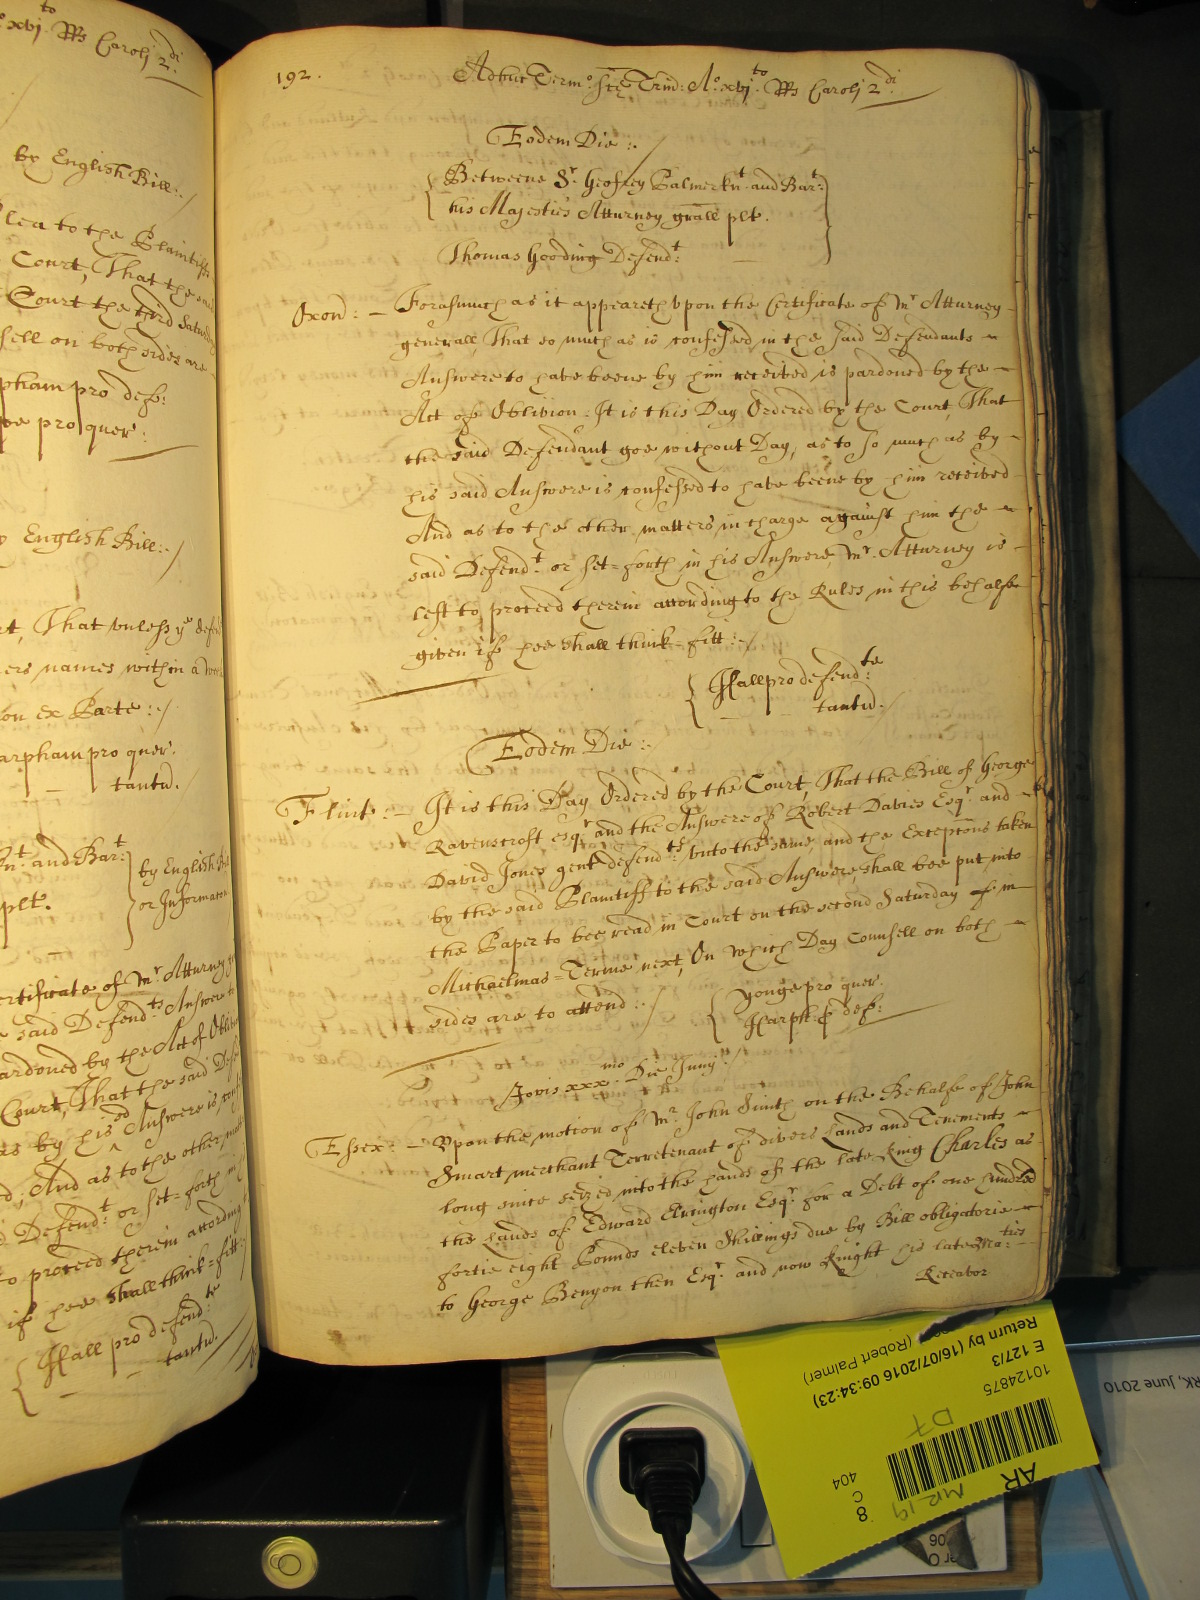 xvj.to RRs Caroli 2.di
by English Bill:
lea to the Plaintiffs
Court, That the
Court the third Saturday
sell on both sides are
pham pro def:
pro quer:
English Bill:
rt, That unless ye defend
ers names within a
on ex Parte:
arpham pro quer.
tantu.
nt. and Bart:
by English
plt.
or Informacon
ertificate of Mr. Atturney
said Defend:ts Answer
ardoned by the Act of Obliv
Court, That the said Def
as by his ed Answere is conf
d, And as to the other mat
Defend:t or set=forth in
o proceed therein according
if hee shall think=fitt:
Hall pro defend:te
tantu.
192.
Adhuc Termo. Scē Trin: Ao. xvj.to RRs Caroli 2.di
Eodem Die:
Betweene Sr. Geofrey Palmer Knt. and Bart:
his Majesties Atturney grall plt.
Thomas Gooding Defend:t
Oxon: Forasmuch as it appeareth upon the Certificate of Mr. Atturney
generall, That so much as is confessed in the said Defendants
Answere to have beene by him received is pardoned by the
Act of Oblivion: It is this Day Ordered by the Court, That
the said Defendant goe without Day, as to so much as by
his said Answere is confessed to have beene by him received
And as to the other matters in charge against him the
said Defend:t or set=forth in his Answere, Mr. Atturney is
left to proceed therein according to the Rules in this behalfe
given if hee shall think=fitt:
Hall pro defend:te
tantu.
Eodem Die:
Flint: It is this Day Ordered by the Court, That the Bill of George
Ravenscroft esqr. and the Answere of Robert Davies Esqr. and
David Jones gent defend:ts unto the same, and the Exceptons taken
by the said Plaintiff to the said Answere shall bee put into
the Paper to bee read in Court on the second Saturday of in
Michaelmas=Terme next, On which Day Counsell on both
sides are to attend:
Yonge pro quer.
Harph: p def:
Jovis xxx.mo Die Junij:
Essex: Upon the motion of Mr. John Smith on the Behalfe of John
Smart merchant Terretenant of divers Lands and Tenements
long since seized into the hands of the late King Charles as
the Lands of Edward Elrington Esqr. for a Debt of one hundred
fortie eight Pounds eleven Shillings due by Bill obligatorie
to George Benyon then Esqr. and now Knight his late Ma:ties
Receavor
Return by (16/07/2016 09:34:23)
(Robert Palmer)
E 127/3
10124875
D7
AR
MR 19
8
C
404
RK, June 2010